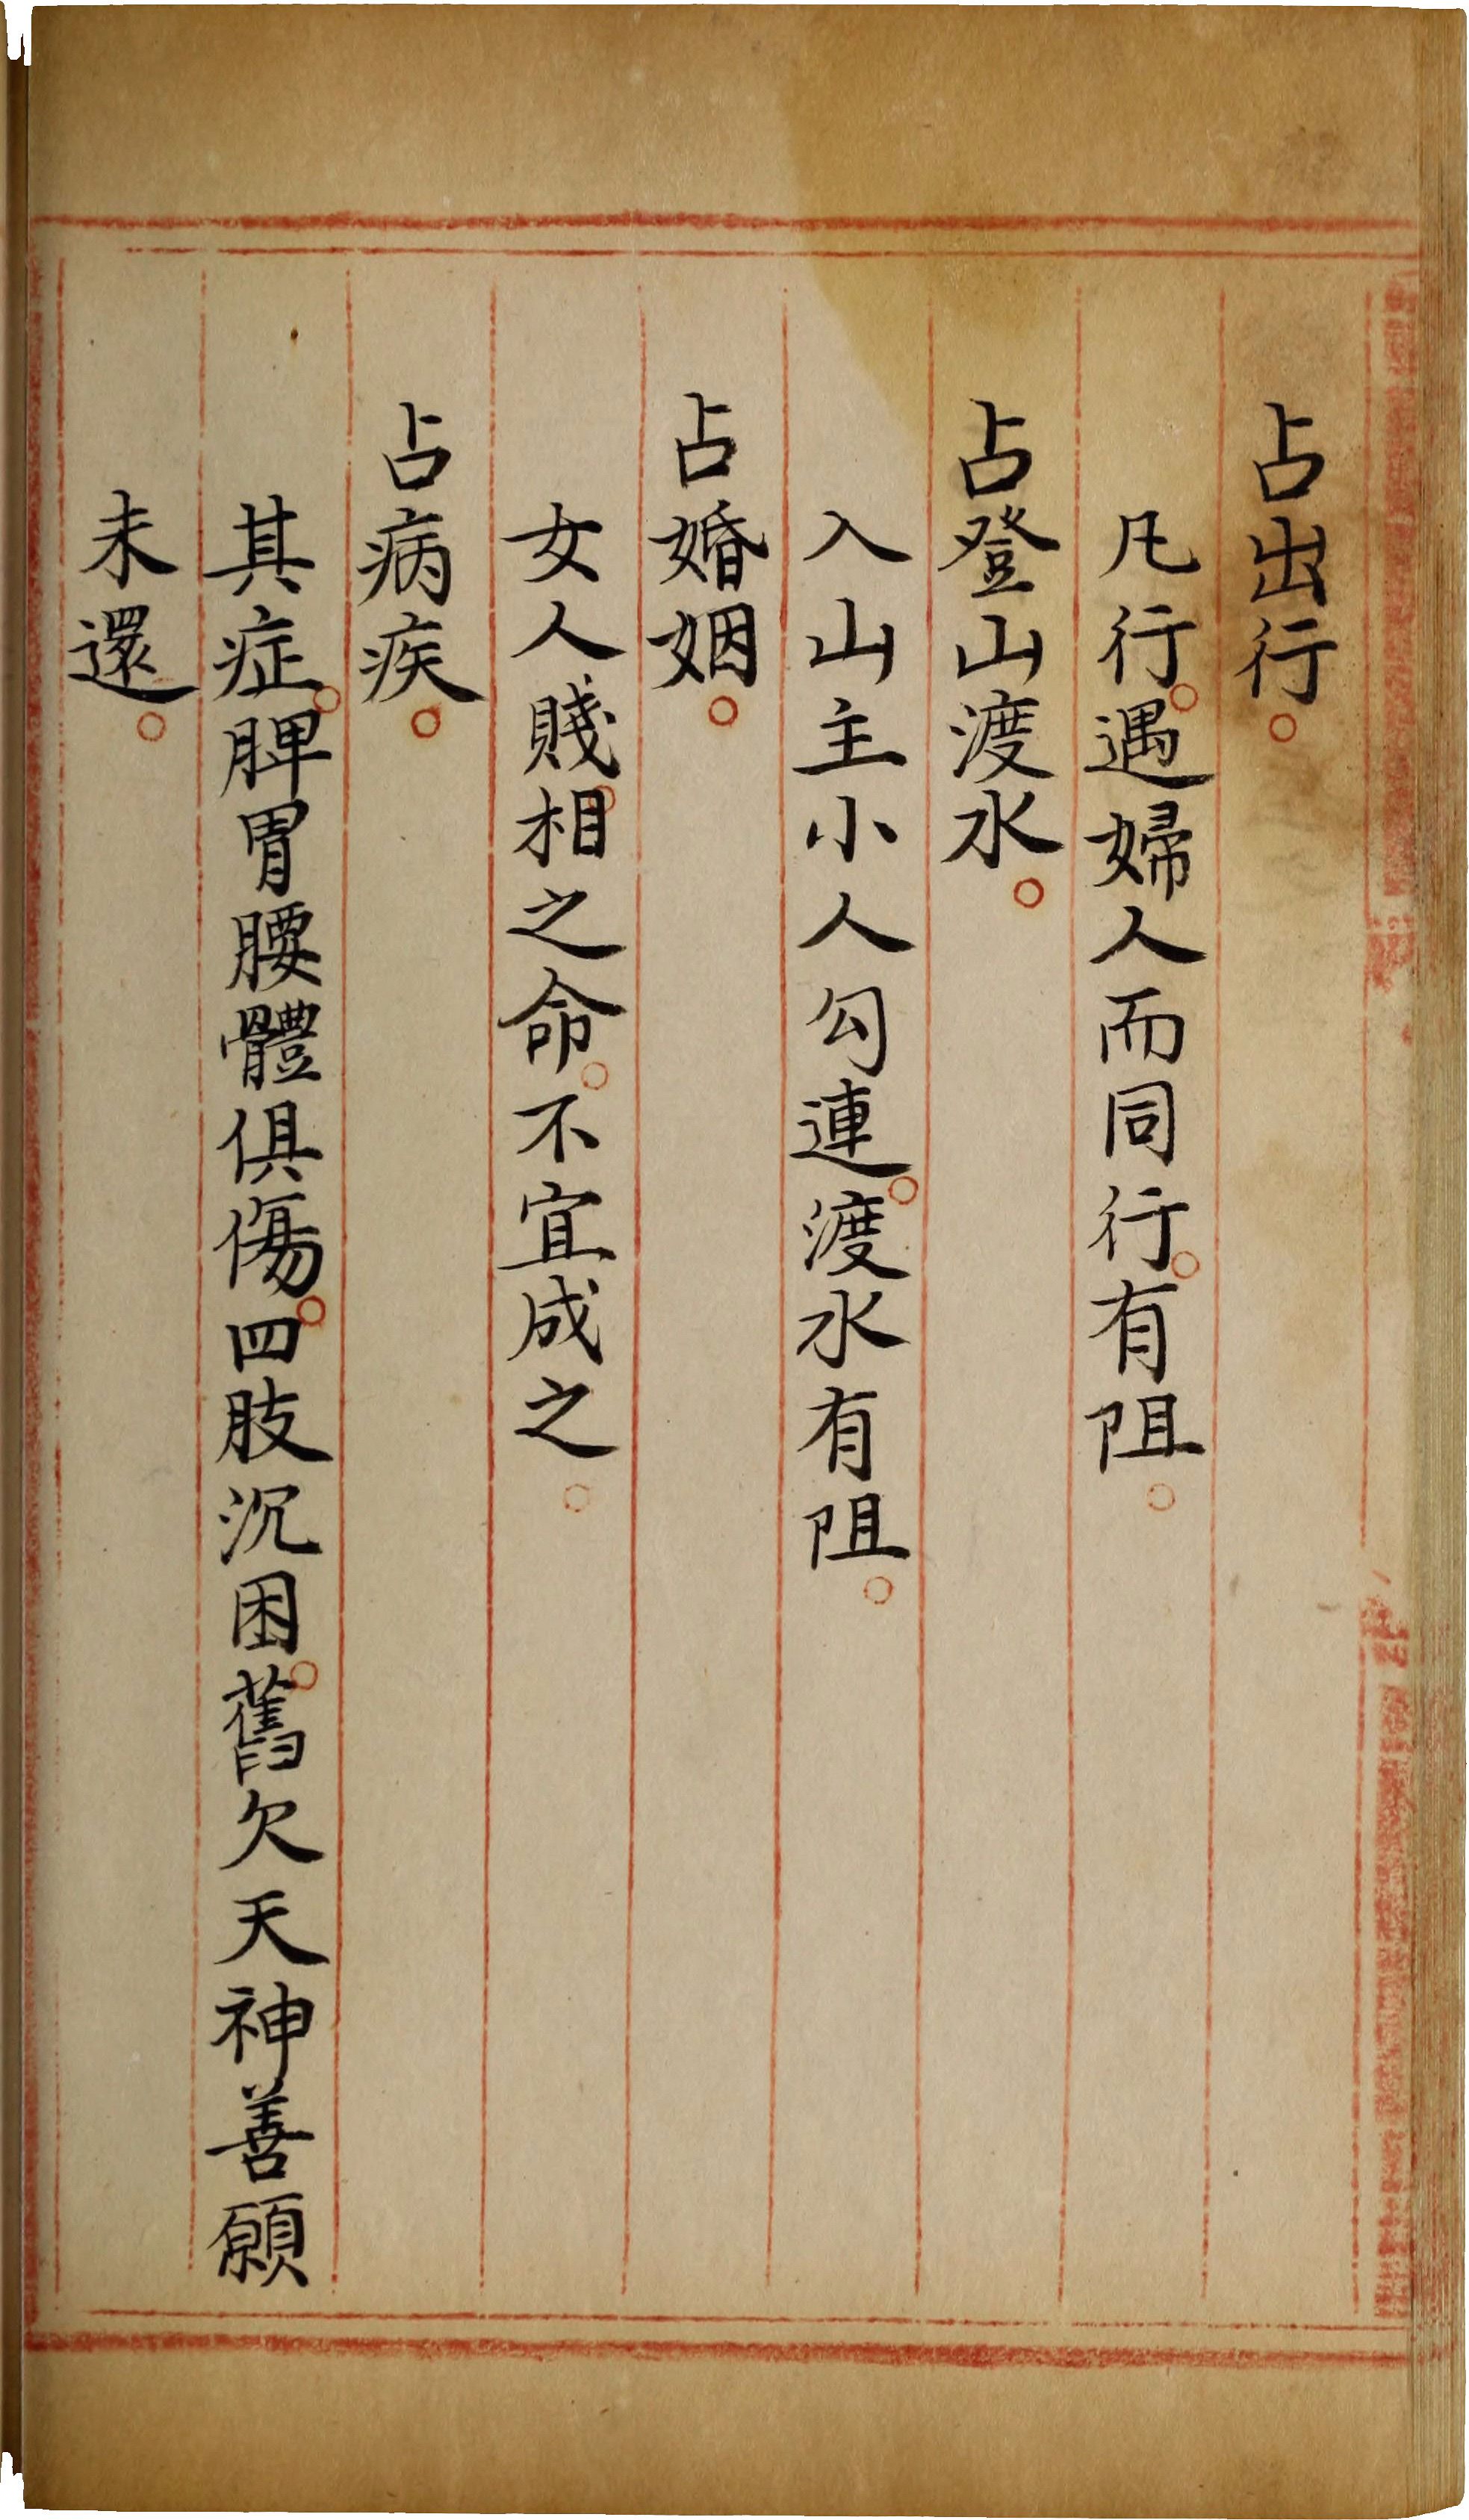 占出行。
凡行。遇婦人而同行。有阻。
占登山渡水。
入山主小人勾連。渡水有阻。
占婚姻。
女人賤。相之命。不宜成之。
占病疾。
其症。脾胃腰體俱傷。四肢沉困。舊欠天神善願
未還。